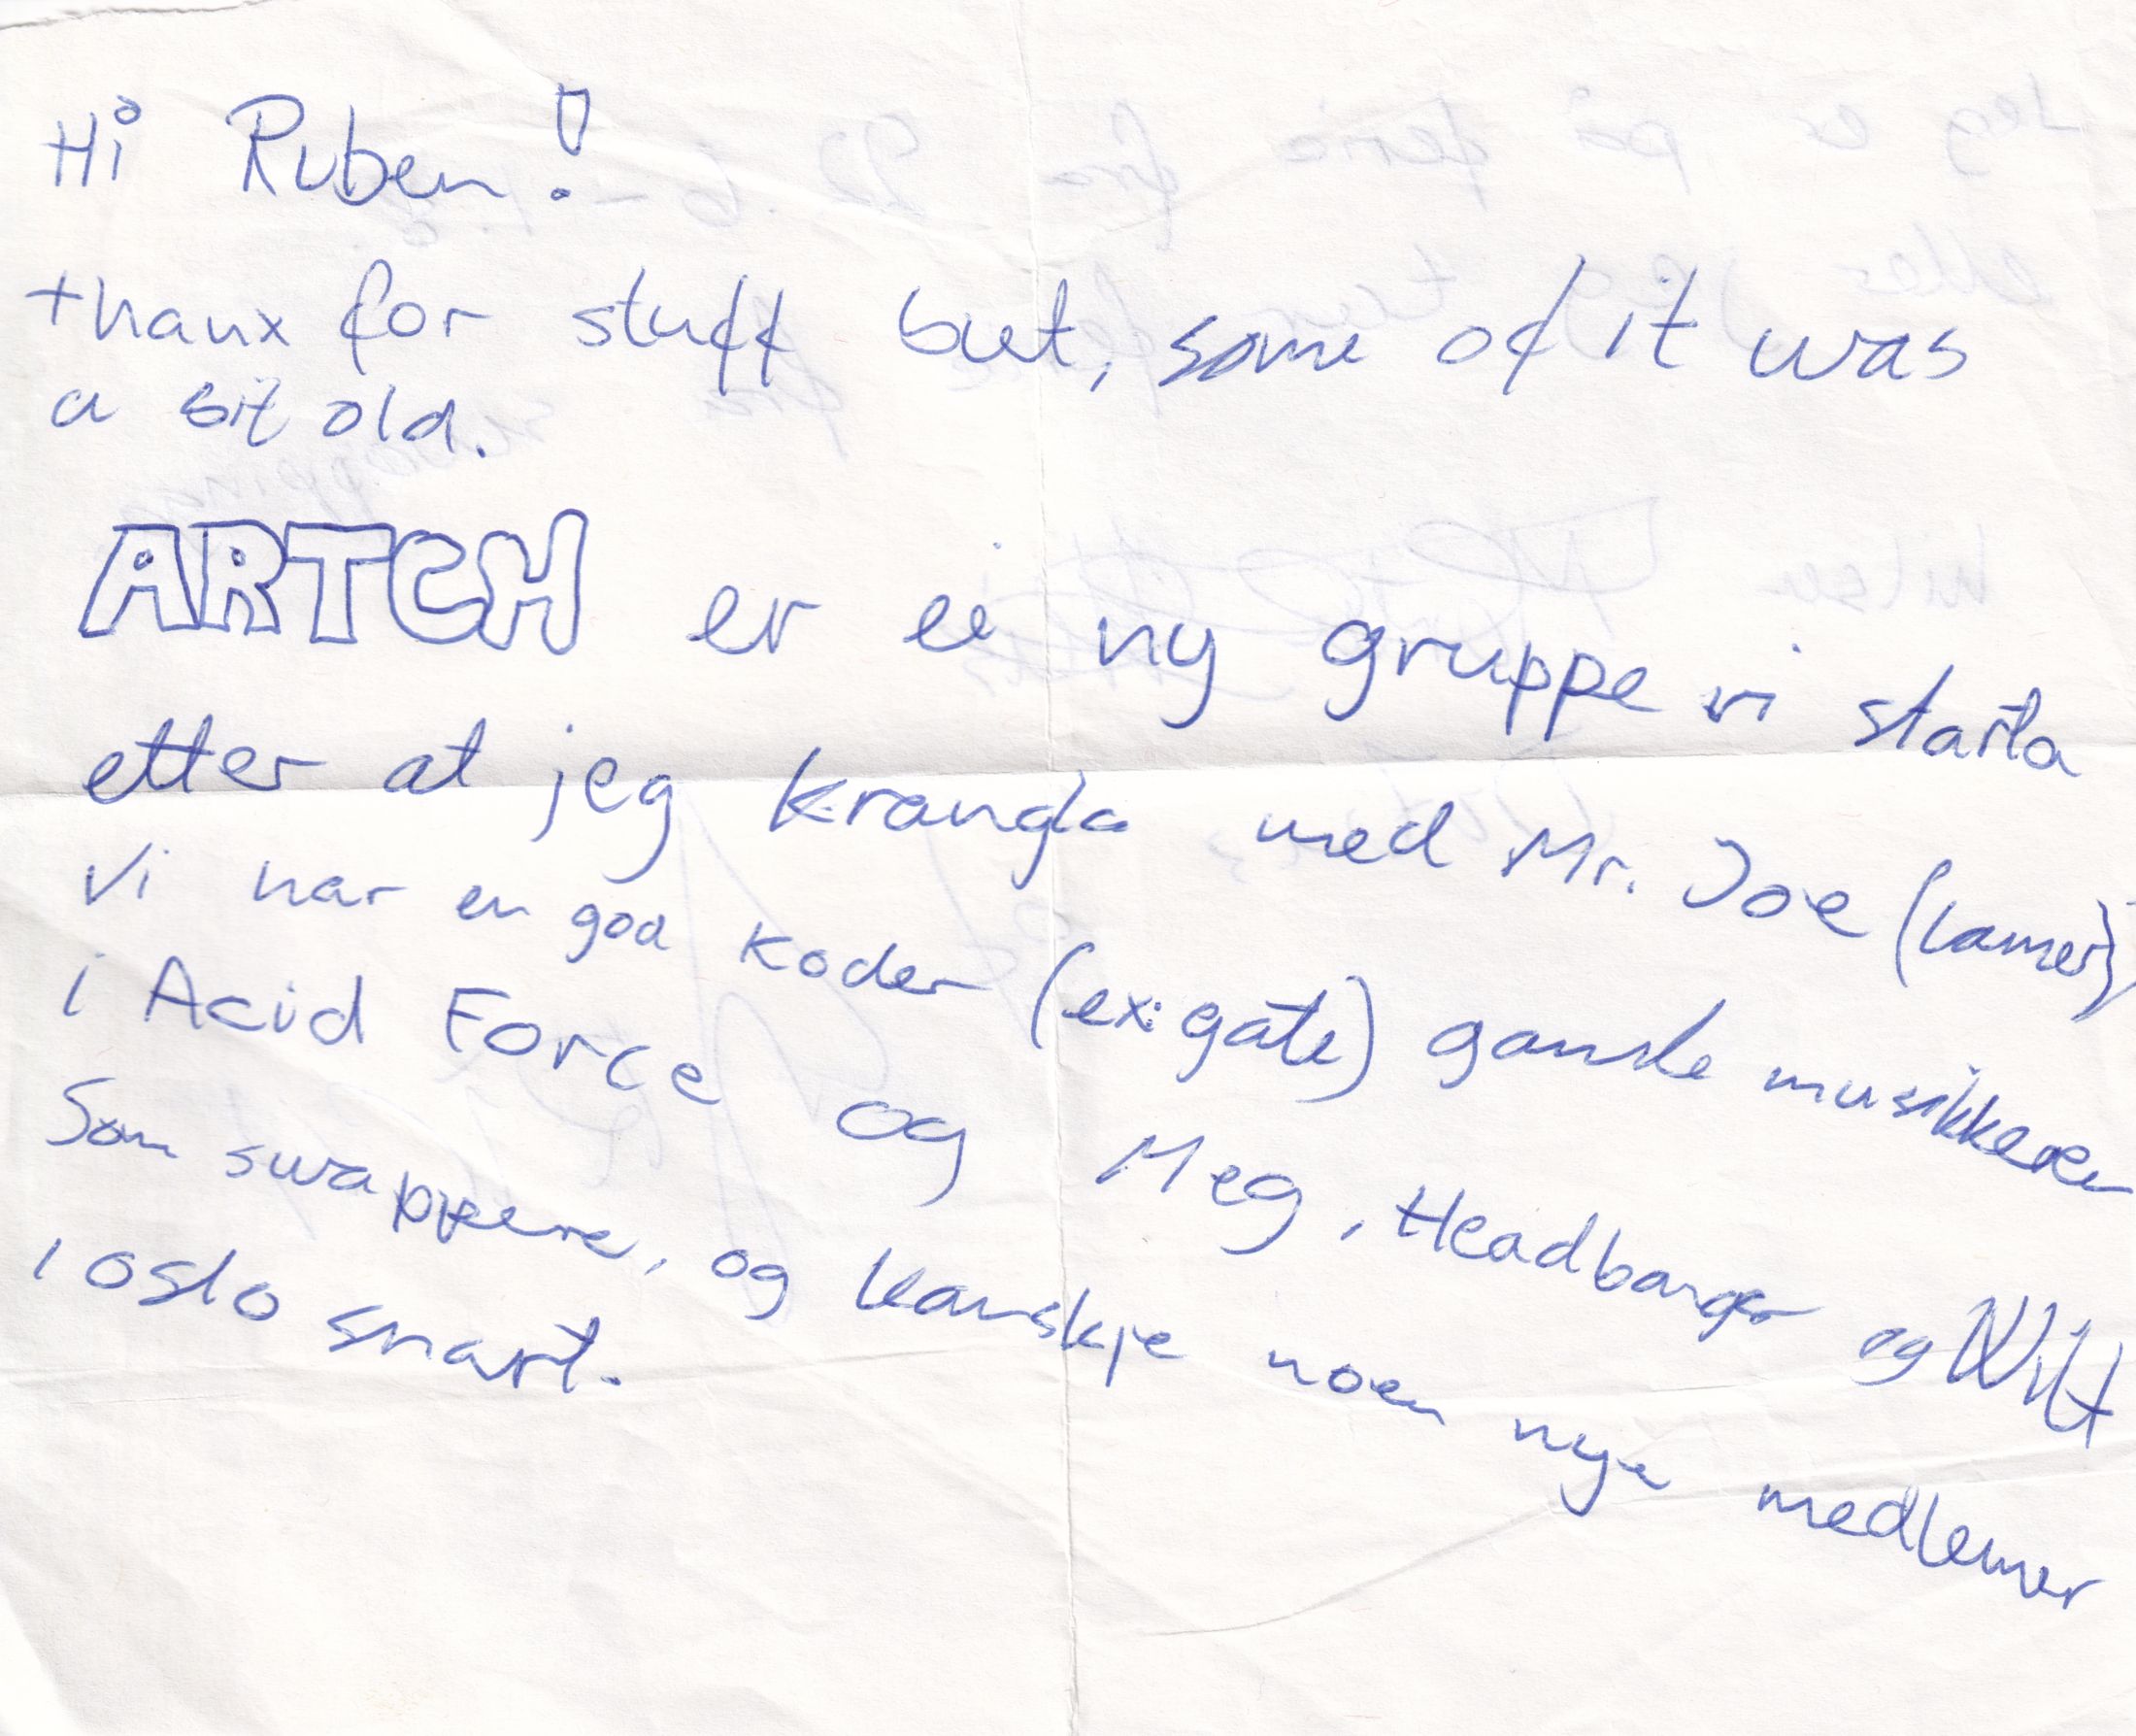 Hi Ruben!
thanx for stuff but, some of it was
a bit old.
ARTCH er ei ny gruppe vi starta
etter at jeg krangla med Mr. Joe (lamer)
Vi har en god koder (ex: gate) ganske musikkeren
i Acid Force og Meg, Headbanger og Wilt
Som swappere, og kanskje noen nye medlemer
i oslo snart.